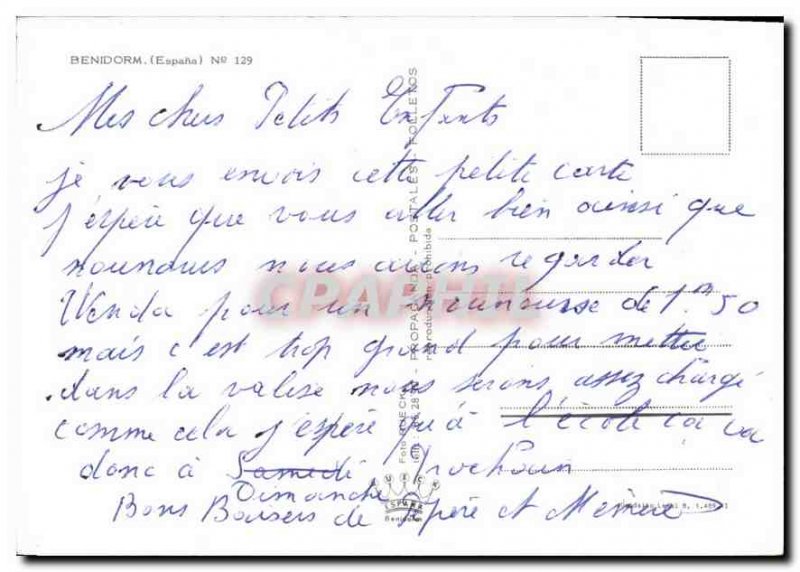 BENIDORM. (España) Nº 129
Mes chers Petits Enfants
je vous envois cette petite carte
j'espère que vous aller bien ainsi que
nounours nous avons regarder
Wenda pour un nounourse de 1.m 50
mais c'est trop grand pour mettre
dans la valise nous serons assez chargé
comme cela j'espère qu'à l'école ça va
donc à Samedi prochain
Dimanche
Bons Baisers de Pépère et Mémère
PROPAGANDA - POSTALES - FOLLETOS
reproducción prohibida
CPAPHIL
ESPAÑA
Benidorm